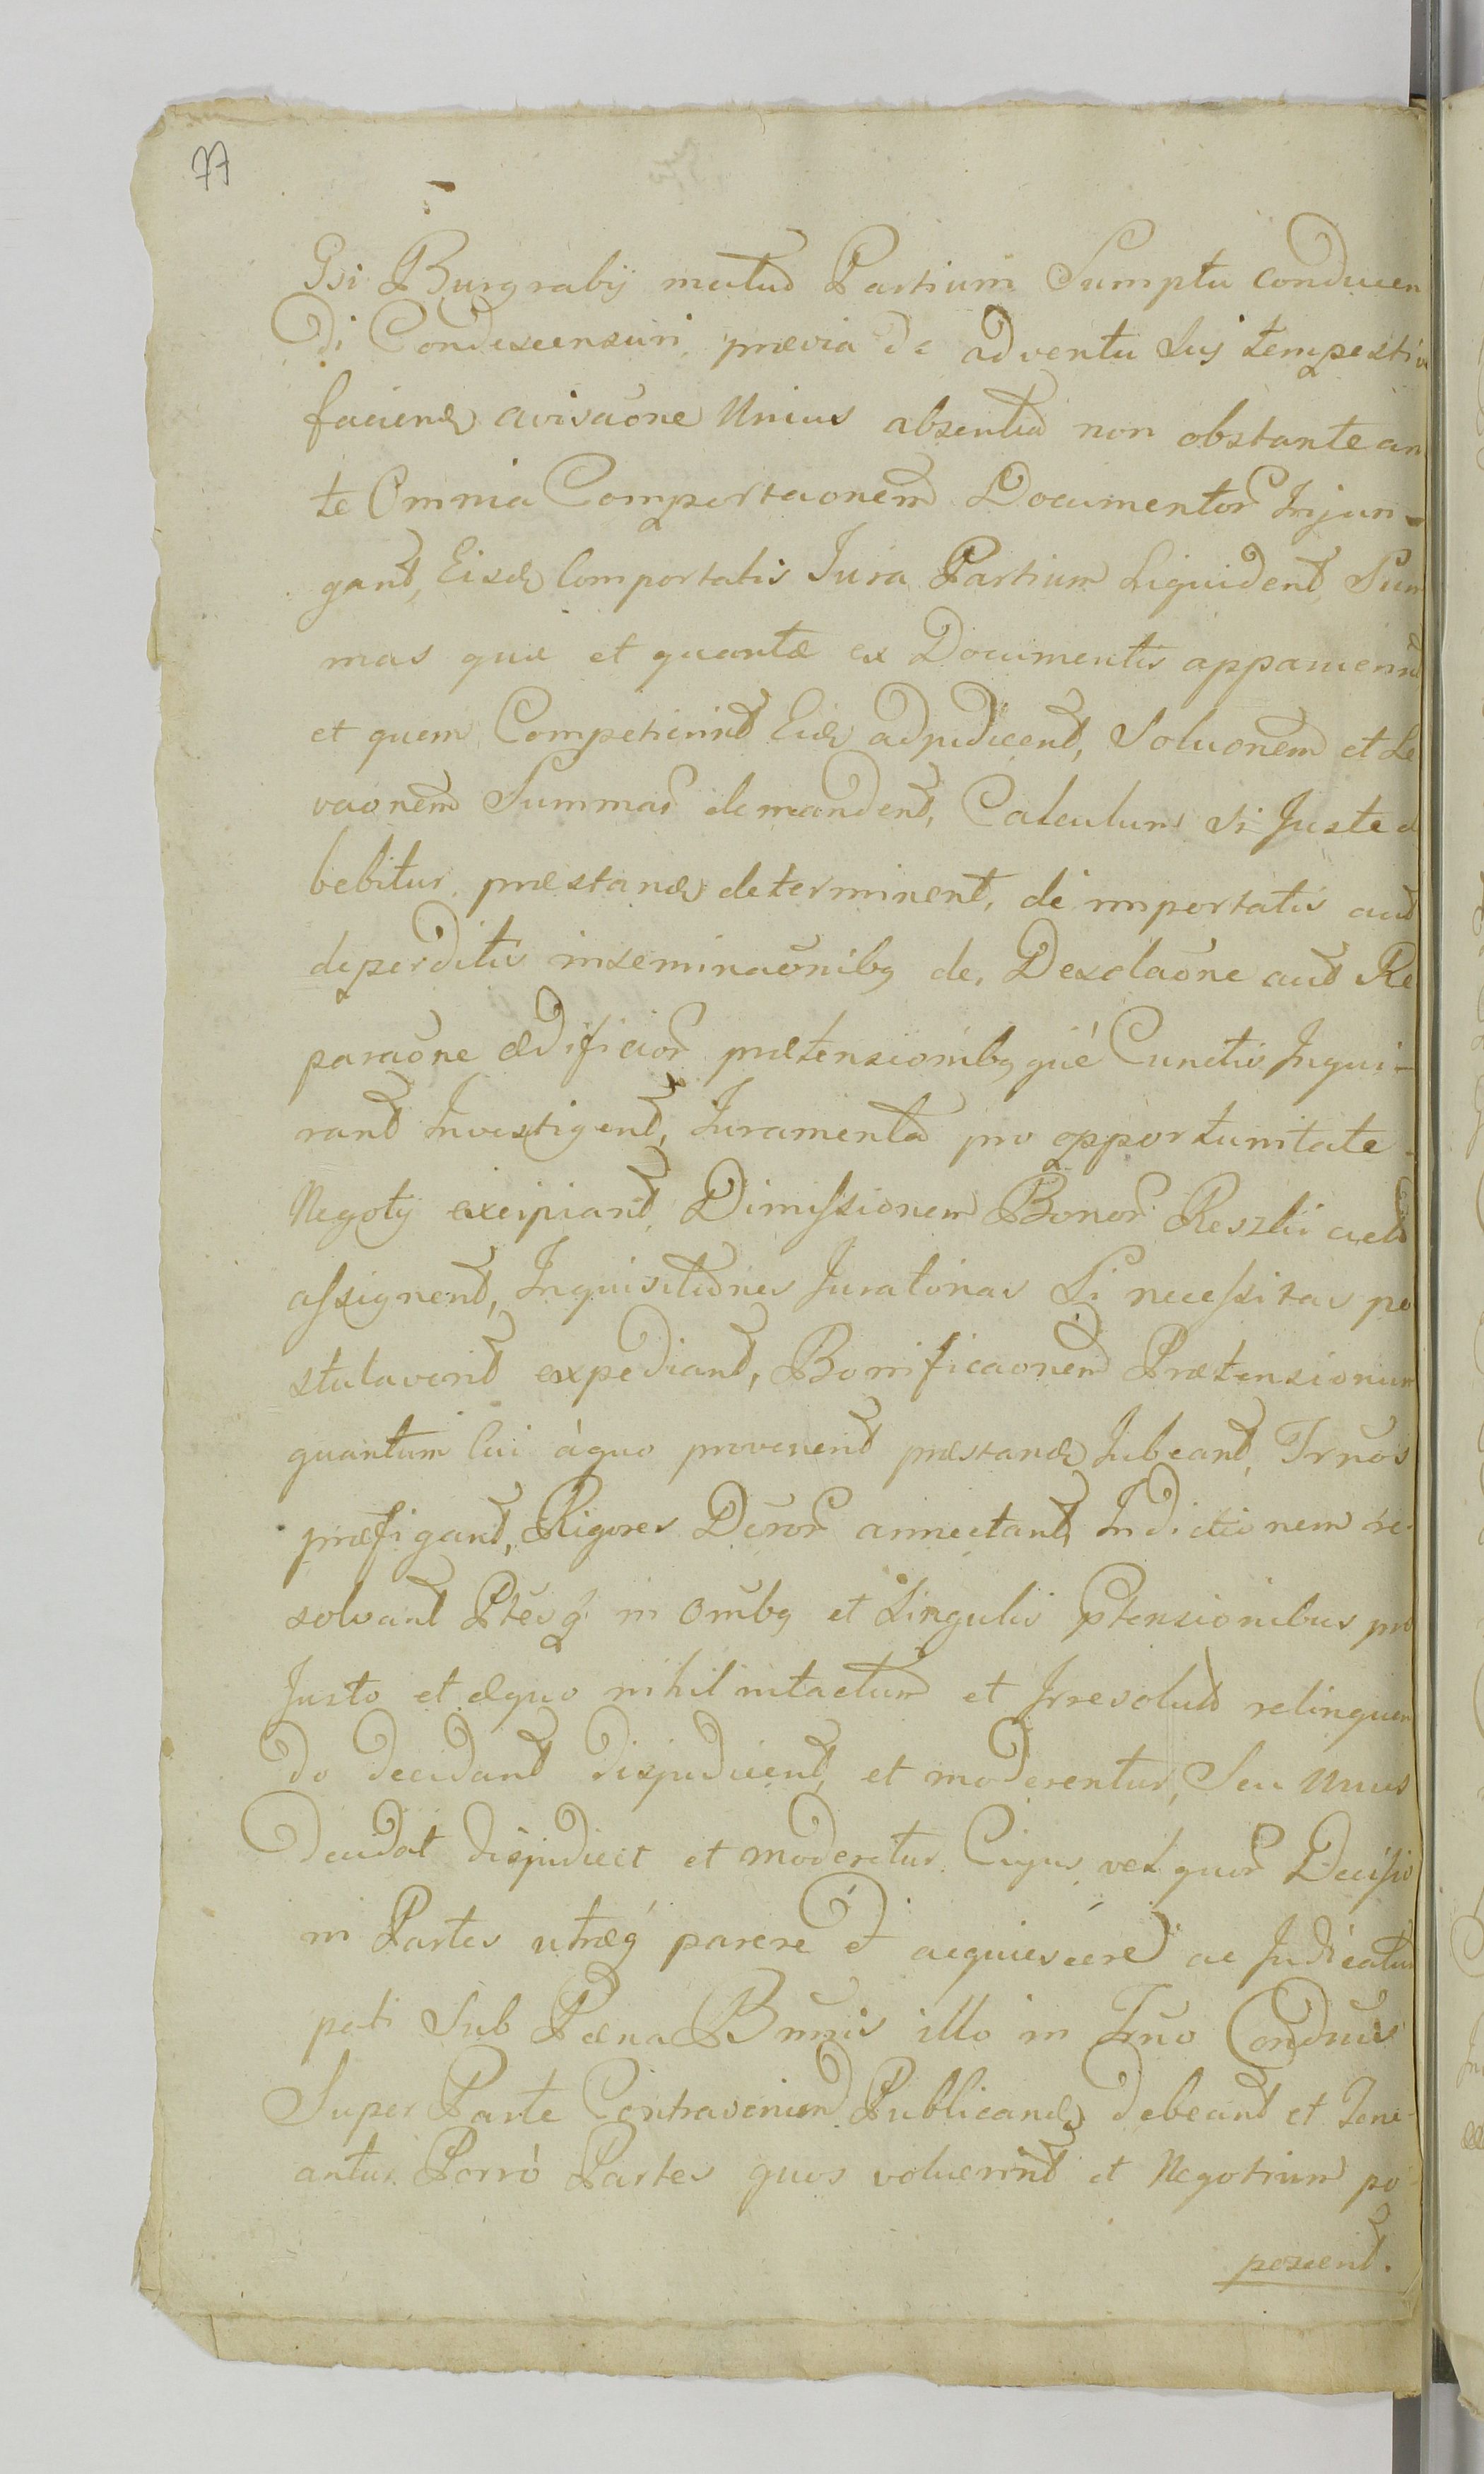 77
Gsi Burgrabij mutuo Partium Sumptu conducen
di Condescensuri, prævia de adventu Sui tempestive
faciend avisaōne Unius absentia non obstante an
te Omnia Comportaonem Documentor Injun-
gant, Eisd Comportatis Jura Partium Liquident, Sum
mas quæ et quantæ ex Documentis apparuerint
et quem Competierint Eid adjudicent, Soluonem et Le
vaonem Summar demandent, Calculum si Juste de
bebitur præstand determinent, de importatis aut
deperditis inseminaōnibq de Desolaōne aut Re
paraōne ædificior prætensionibq que Cunctis Inqui-
rant Investigent, Juramenta pro opportunitate
Negotij excipiant, Dimissionem Bonor Reszlii
assignent, Inquisitiones Juratorias Si necessitas po
stulaverit expediant, Bonificaonem Prætensionum
quantum Cui àquo provenerit præstand Jubeant, Trnōs
præfigant, Rigores Dcror annectant, Indictionem re-
solvant Ptesq in omībq et Singulis Ptensionibus pro
Justo et æquo nihil intactum et Irresolutum relinquen
do decidant disjudicent, et moderentur, Seu Unus
Decidat disjudicet et moderetur. Cujus vel quor Decisio
ni Partes utræq parere et acquiescere ac Judicatum
pati Sub Pæna Bnnis illo in Trno Condnis
Super Parte Contravenien Publicand debeant et Tene-
antur. Porrò Partes quos voluerint et Negotium po-
poscent.